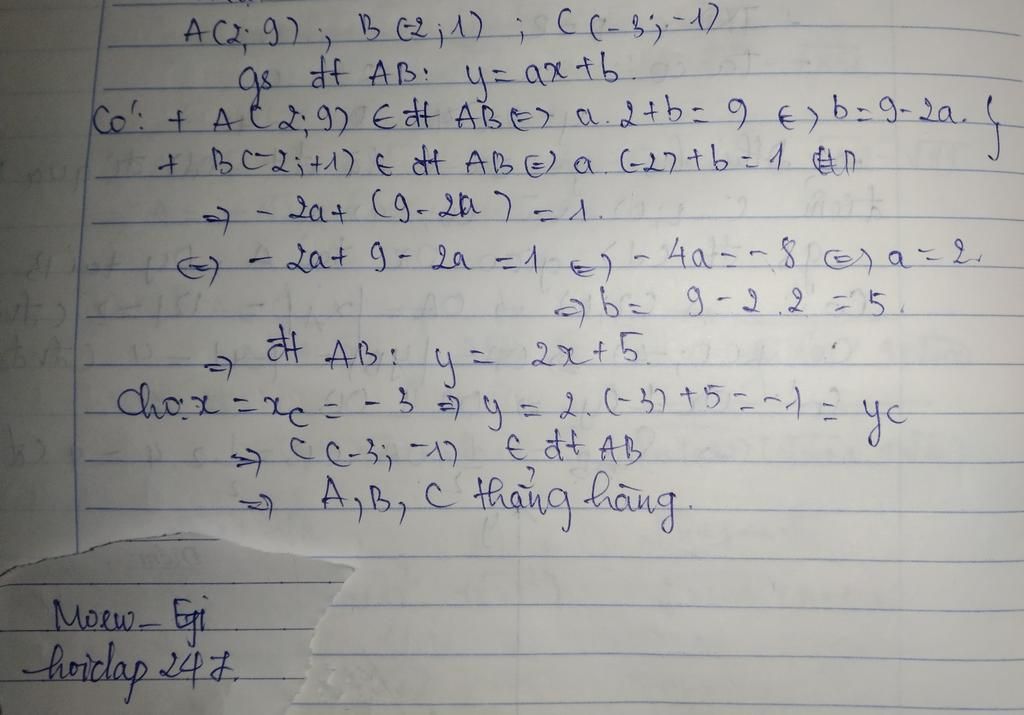 A(2; 9) ; B(-2; 1) ; C(-3; -1)
gs đt AB: y = ax + b.
Có: + A(2; 9) ∈ đt AB ⇔ a. 2 + b = 9 ⇔ b = 9 - 2a. }
+ B(-2; +1) ∈ đt AB ⇔ a. (-2) + b = 1
⇒ - 2a + (9 - 2a) = 1.
⇔ - 2a + 9 - 2a = 1 ⇔ - 4a = - 8 ⇔ a = 2.
⇒ b = 9 - 2.2 = 5.
⇒ đt AB: y = 2x + 5.
Cho: x = xC = - 3 ⇒ y = 2. (-3) + 5 = -1 = yC
⇒ C(-3; -1) ∈ đt AB
⇒ A, B, C thẳng hàng.
Moew - Egi
hoidap 247.